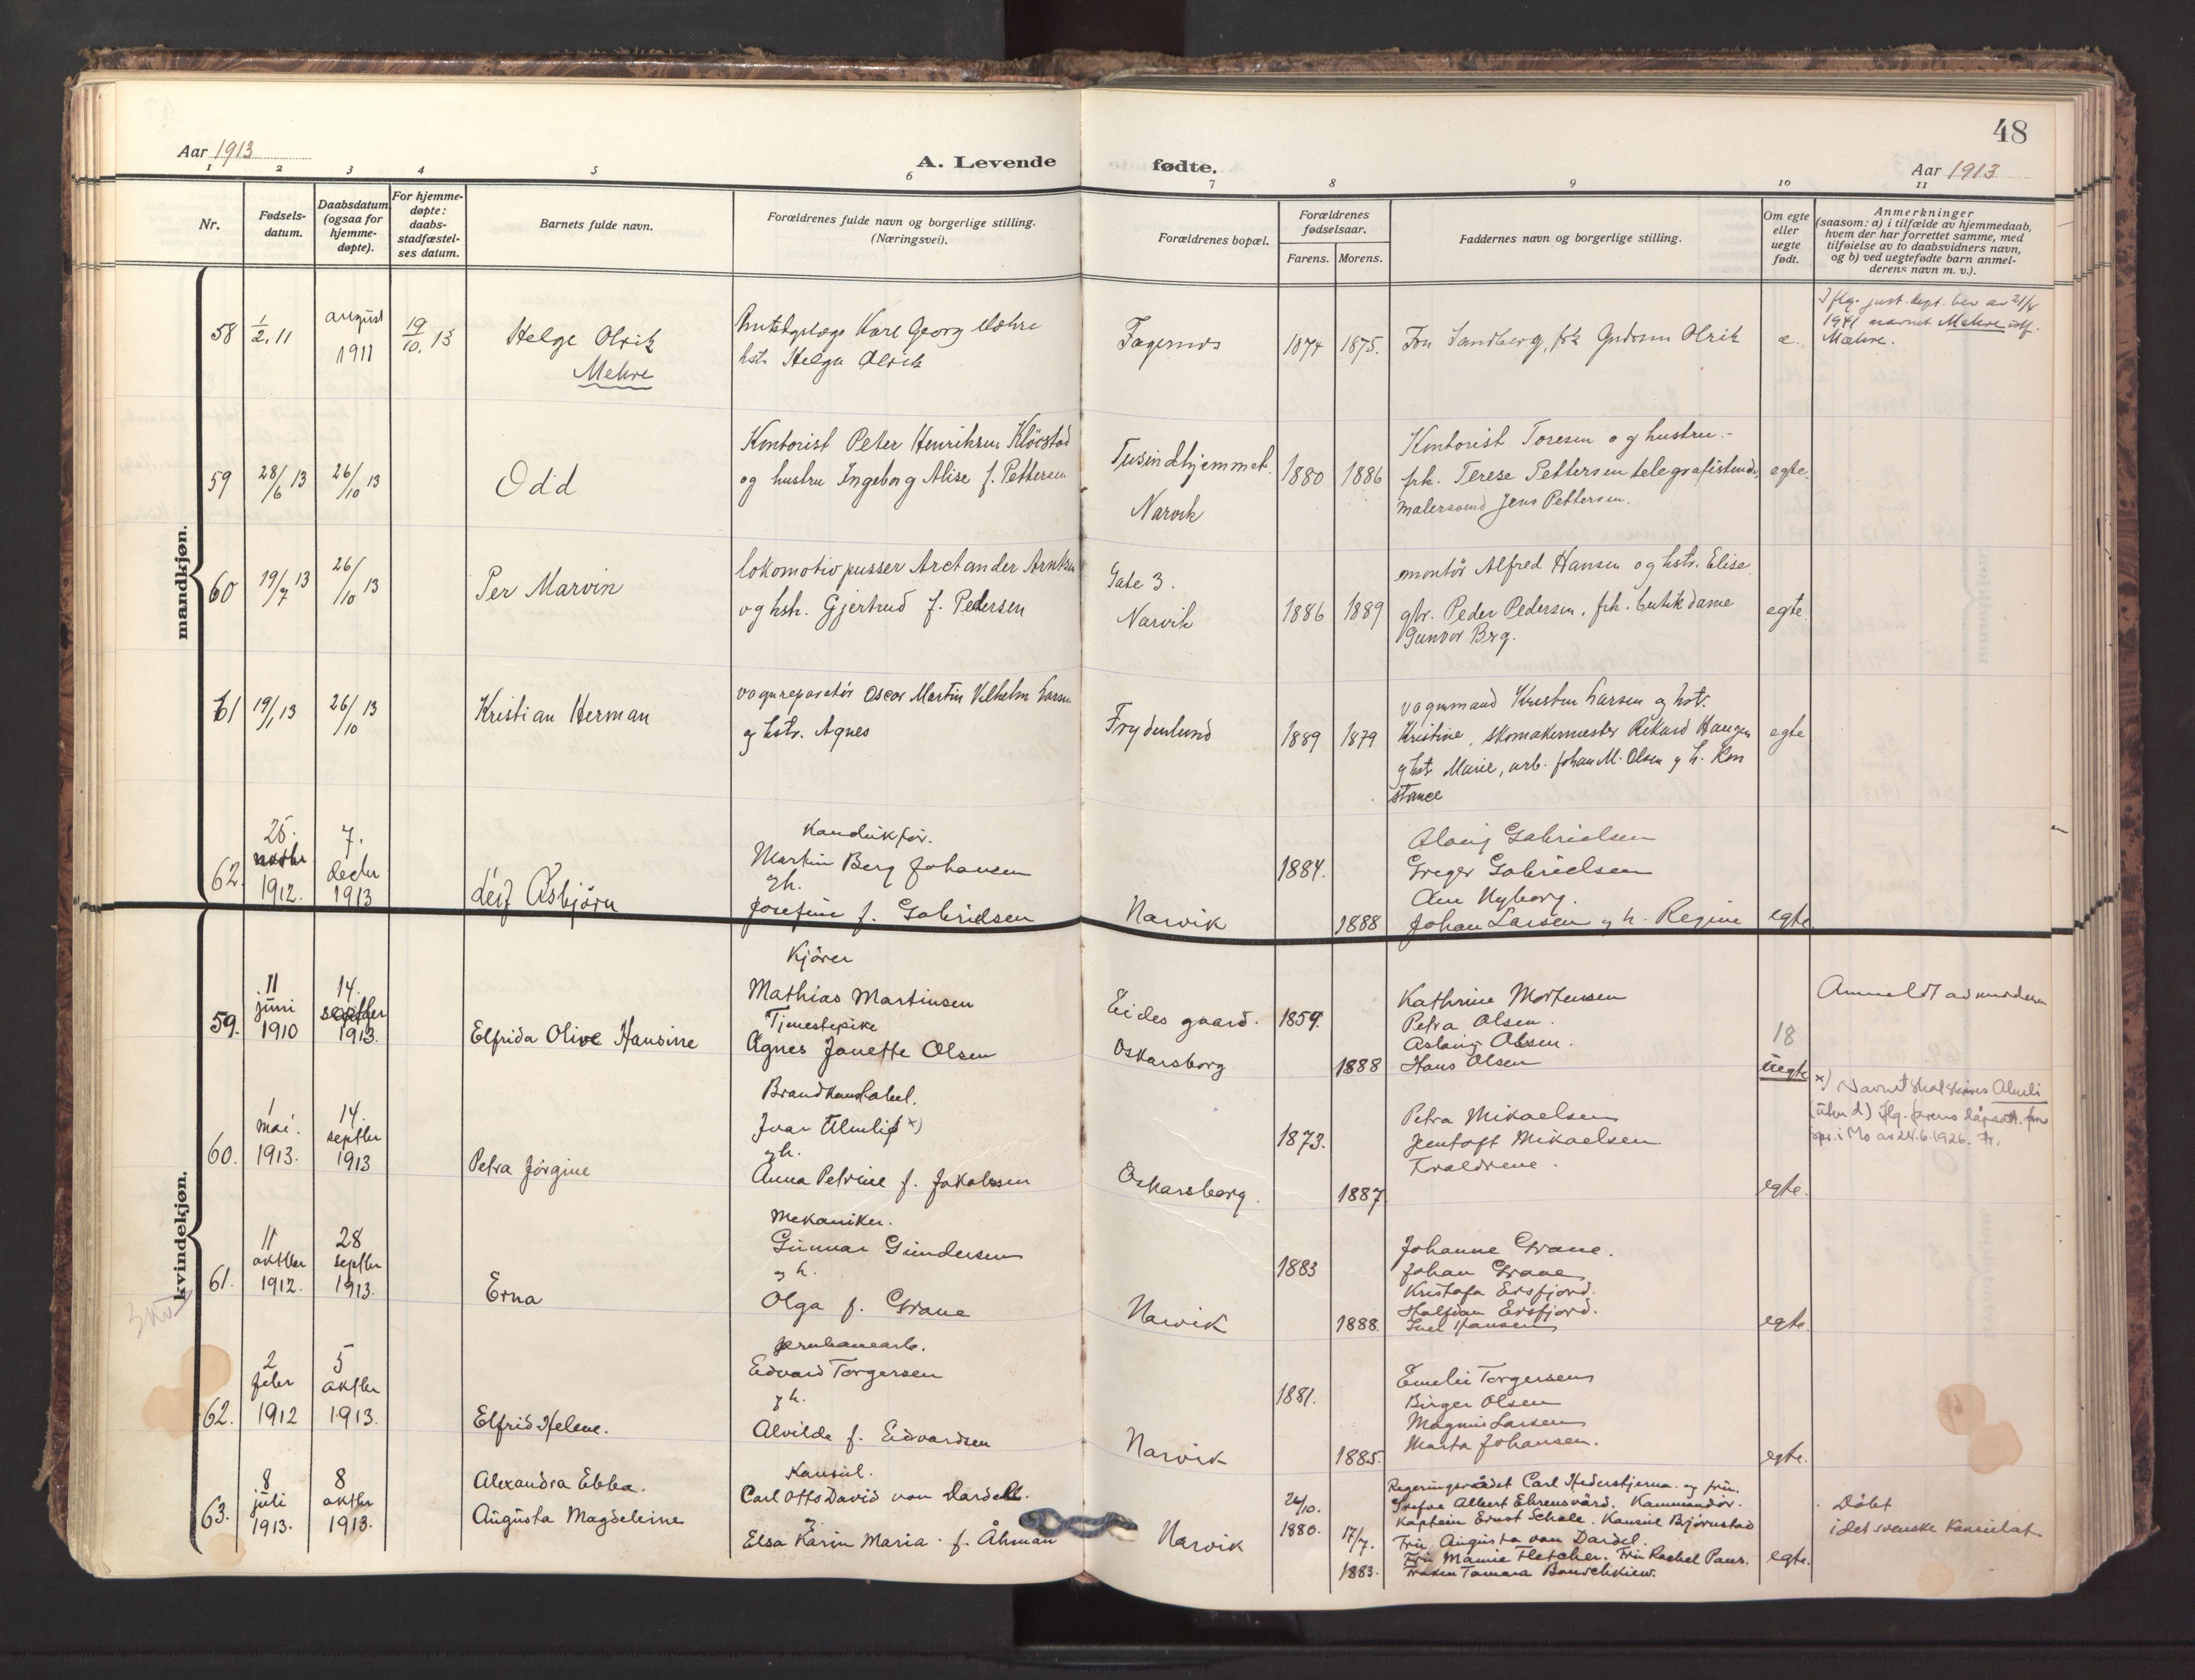 48
Aar 1913
A. Levende
fødte.
Aar 1913
1 2 3 4 5 6 7 8 9 10 11
Nr.
Fødsels-
datum.
Daabsdatum
(ogsaa for
hjemme-
døpte).
For hjemme-
døpte:
daabs-
stadfæstel-
ses datum.
Barnets fulde navn.
Forældrenes fulde navn og borgerlige stilling.
(Næringsvei).
Forældrenes bopæl.
Forældrenes
fødselsaar.
Farens. Morens.
Faddernes navn og borgerlige stilling.
Om egte
eller
uegte
født.
Anmerkninger
(saasom: a) i tilfælde av hjemmedaab,
hvem der har forrettet samme, med
tilføielse av to daabsvidners navn,
og b) ved uegtefødte barn anmel-
derens navn m. v.).
mandkjøn.
58
1/2. 11
august
1911
19/10. 13
Helge Olrik
Mehre
Karl Georg Mæhre
hst. Helga Olrik
Fagernes
1874
1875.
Fru Sandberg, frk Gudrun Olrik
e.
Iflg. just. dept. bev av 21/8
1941 navnet Mehre istf.
Mæhre.
59
28/6 13
26/10 13
Odd
Kontorist Peter Henriksen Klöcstad
og hustru Ingeborg Alise f. Pettersen
Tusindhjemmet.
Narvik
1880
1886
Kontorist Toresen og hustru.-
frk. Terese Pettersen telegrafistinde,
malersvend Jens Pettersen.
egte.
60
19/7 13
26/10 13
Per Marvin
lokomotivpusser Arctander Arntsen
og hstr. Gjertrud f. Pedersen
Gate 3.
Narvik
1886
1889
montör Alfred Hansen og hstr. Elise
gbr. Peder Pedersen, frk. butikdame
Gunvor Brg.
egte.
61
19/1 13
26/10 13
Kristian Herman
vognreparatör Oscar Martin Vilhelm Larsen
og hstr. Agnes
Frydenlund
1889
1879
vognmand Kristen Larsen og hstr.
Kristine, skomakermester Rikard Haugen
og hstr Marie, arb. Johan M. Olsen og h. Kon
stance
egte
62.
25.
1912.
7.
decbr
1913
Leif Asbjörn
Konduktör.
Martin Berg Johansen
og h.
Josefine f. Gabrielsen
Narvik
1884.
1888
Aslaug Gabrielsen
Greger Gabrielsen
Nyborg.
Johan Larsen og h. Regine
egte
kvindekjøn.
59.
11
juni
1910
14.
septber
1913.
Elfrida Olive Hansine
Kjörer
Mathias Martinsen
Tjenestepike
Agnes Janette Olsen
Eides gaard.
Oskarsborg
1859.
1888
Kathrine Mortensen
Petra Olsen.
Aslaug Olsen.
Hans Olsen
18
uegte
Anmeldt av moderen
60.
1
mai.
1913.
14.
septber
1913
Petra Jörgine
Brandkonstabel.
Ivar Almlid x)
og h.
Anna Petrine f. Jakobsen
Oskarsborg.
1873.
1887
Petra Mikaelsen
Jentoft Mikaelsen.
Foraldrene.
egte.
x) Navnet skal skrives Almli
(uten d) iflg. farens dåpsatt. fra
spr. i Mo av 24.6.1926. Fr.
61.
11
oktbr
1912.
28
septbr
1913.
Erna
Mekaniker.
Gunnar Gundersen
og h.
Olga f. Grane
Narvik
1883
1888.
Johanne Grane.
Johan Grane
Kristofa Ersfjord.
Halfdan Ersfjord.
Hansen
egte.
62.
2
feber
1912
5
oktbr
1913.
Elfrid Helene.
Jernbanearb.
Edvard Torgersen
og h.
Alvilde f. Edvardsen
Narvik
1881.
1885.
Emelie Torgersen
Birger Olsen
Magnus Larsen
Marta Johansen.
egte.
63.
8
juli
1913.
8
oktbr
1913.
Alexandra Ebba.
Augusta Magdeleine
Konsul.
Carl Otto David von Dardell.
og
Elsa Karin Maria. f. Åhman
Narvik
26/10.
1880.
17/7.
1883.
Regeringsrådet Carl Hederstjerna. og fru.
Grefve Albert Ehrensvärd. Kammandör.
Kaptein Ernst Schale. Konsul Björnstad
Fru Augusta von Dardel.
Fru Mamie Fletcher. Fru Rachel Paus.
Fröken Tamara
egte.
Döbt
i det svenske Konsulat